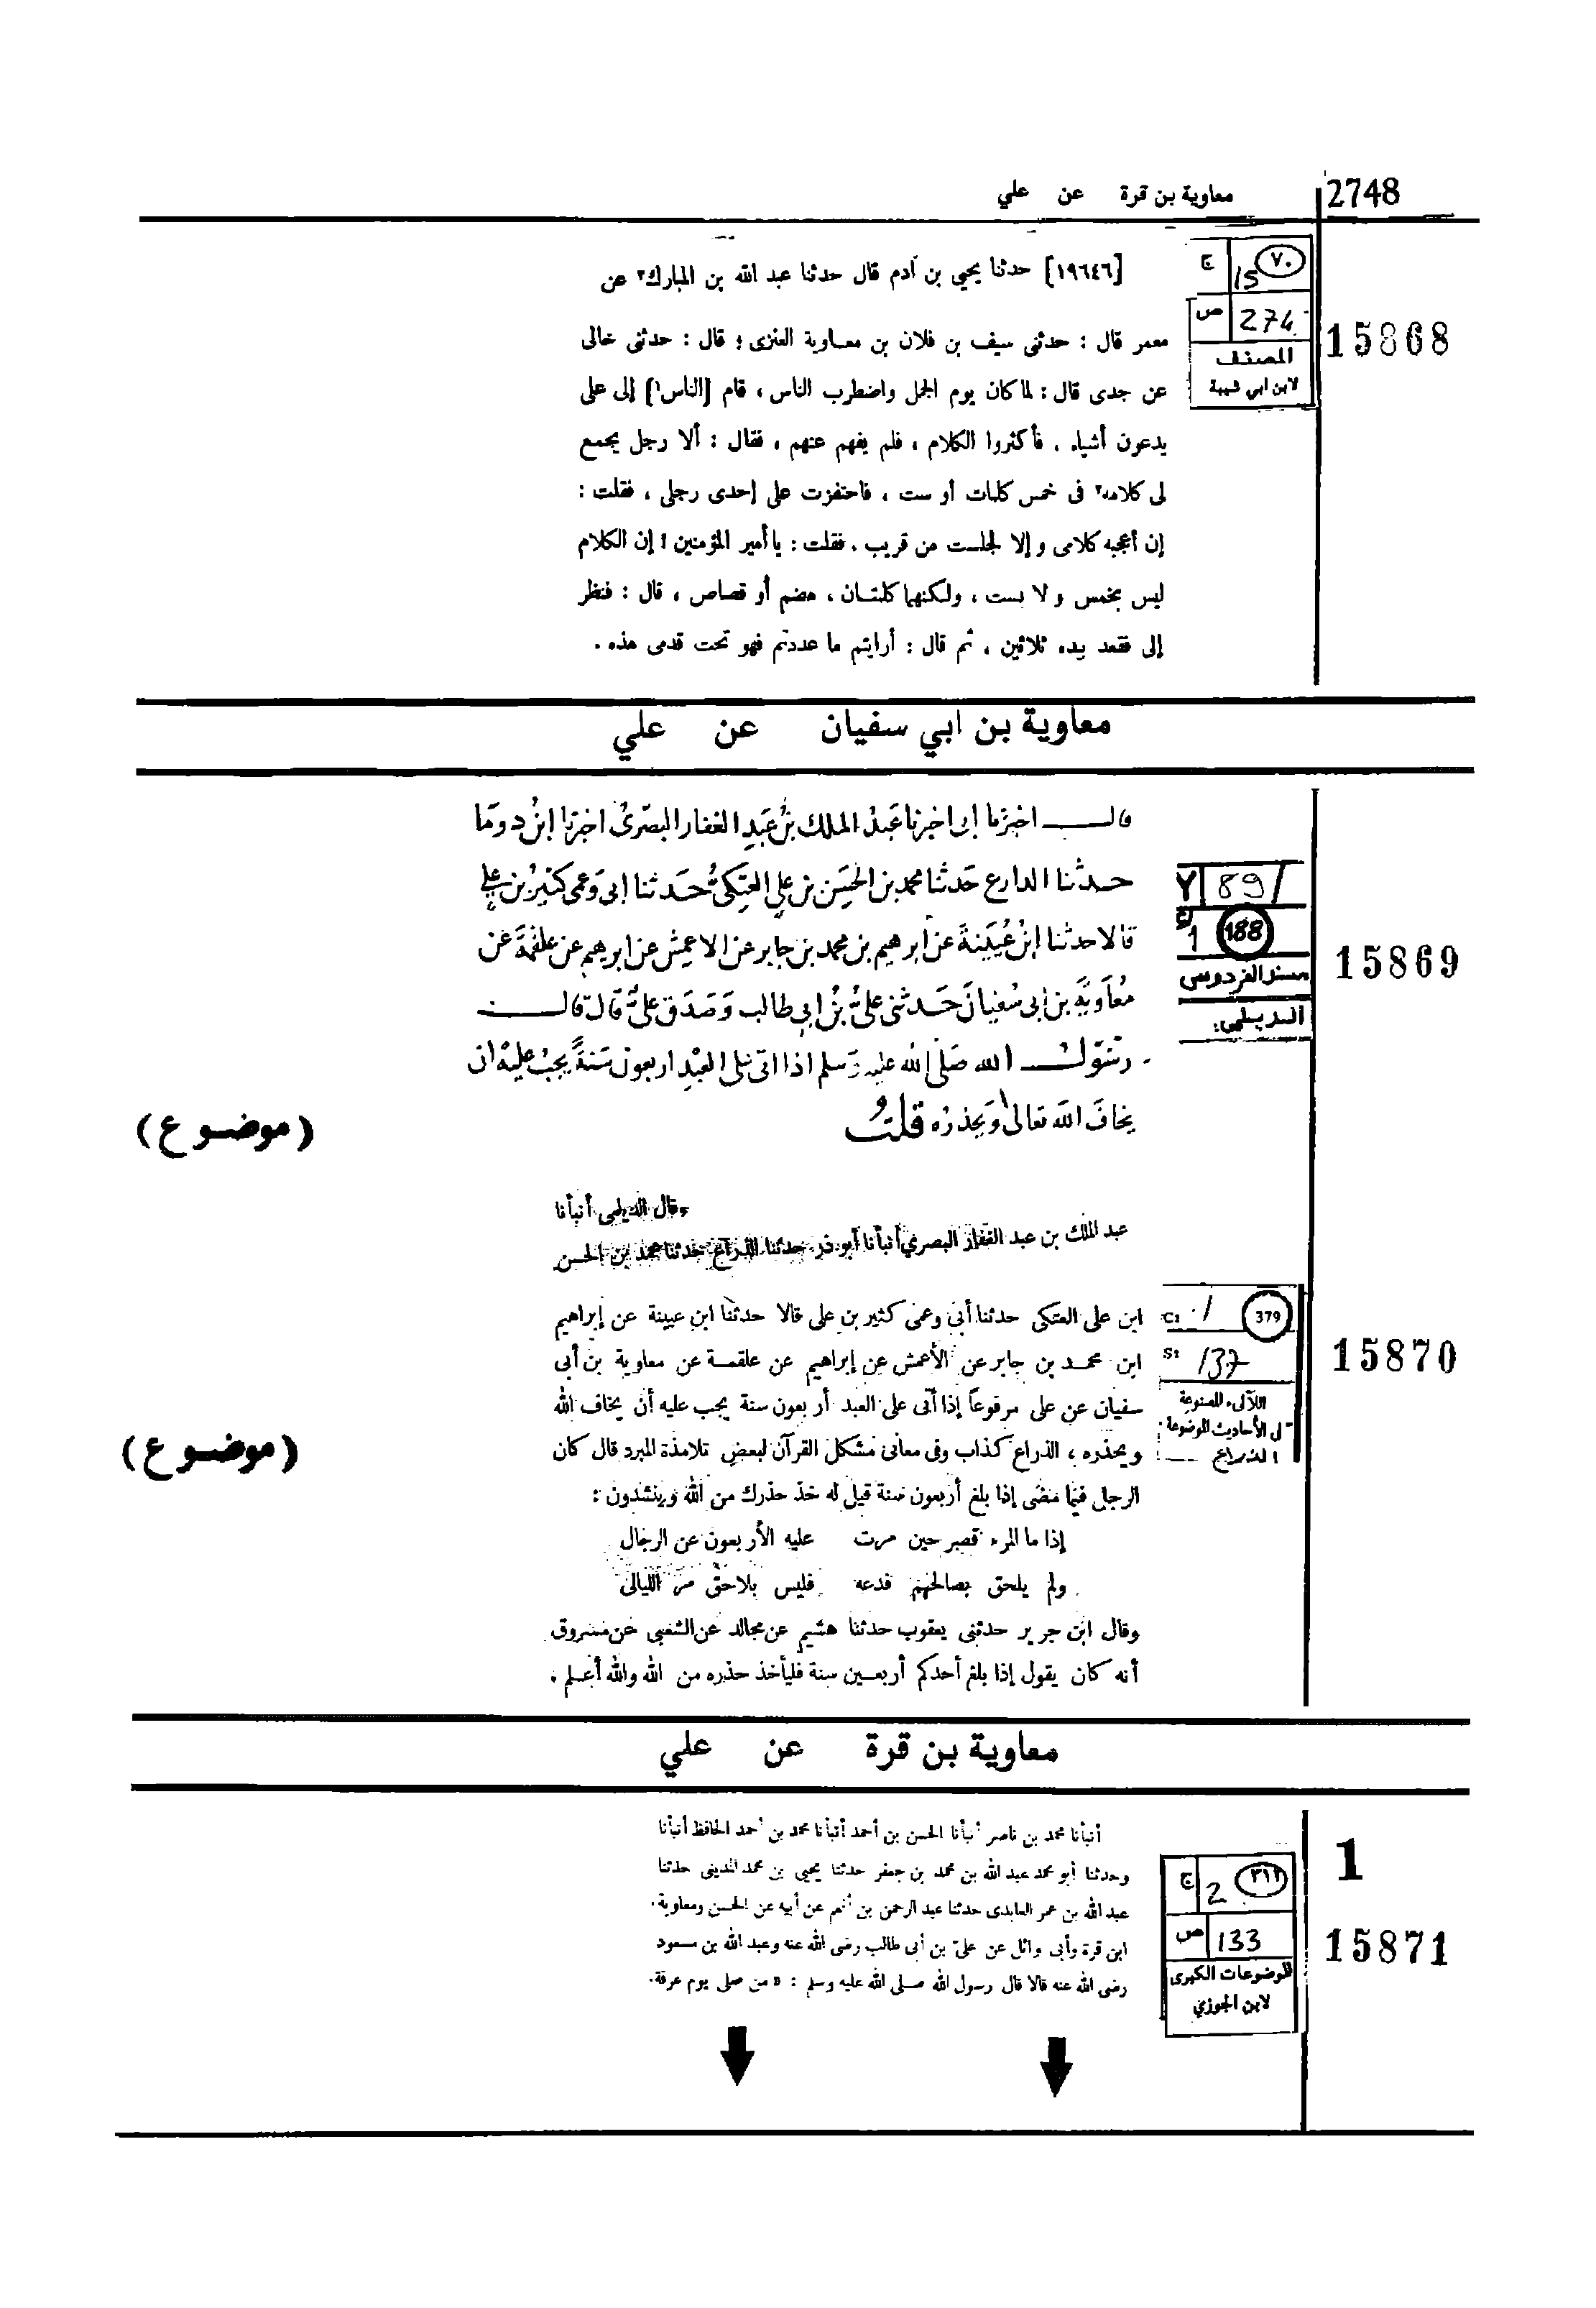 معاوية بن قرة عن علي
2748
[١٩٦٤٦] حدثنا يحيى بن آدم قال حدثنا عبد الله بن المبارك٢ عن
معمر قال : حدثنى سيف بن فلان بن معاوية العنزى ؛ قال : حدثنى خالى
عن جدى قال : لما كان يوم الجمل واضطرب الناس ، قام [الناس١] إلى على
يدعون أشياء . فأكثروا الكلام ، فلم يفهم عنهم ، فقال : ألا رجل يجمع
لى كلامه٢ فى خمس كلمات أو ست ، فاحتفزت على إحدى رجلى ، فقلت :
إن أعجبه كلامى وإلا لجلست من قريب . فقلت : يا أمير المؤمنين ! إن الكلام
ليس بخمس ولا بست ، ولكنهما كلمتان ، هضم أو قصاص ، قال : فنظر
إلى فعقد بيده ثلاثين ، ثم قال : أرايتم ما عددتم فهو تحت قدمى هذه .
ج 15 ٧٠
ص 274
المصنف
لابن ابي شيبة
15868
معاوية بن ابي سفيان عن علي
قال اخبرنا ابى اخبرنا عبد الملك بن عبد الغفار البصرى اخبرنا ابن دوما
حدثنا الدارع حدثنا محمد بن الحسن بن على العتكى حدثنا ابى وعمى كثير بن على
قالا حدثنا ابن عيينة عن ابرهيم بن محمد بن جابر عن الاعمش عن ابرهيم عن علقمة عن
معاوية بن ابى سفيان حدثنى على بن ابى طالب وصدق على قال قال
رسول الله صلى الله عليه وسلم اذا اتى على العبد اربعون سنة يجب عليه ان
يخاف الله تعالى ويحذره قلت
(موضوع)
Y 89
ج 1 188
مسند الفردوس
الديلمي:
15869
وقال الديلمى أنبأنا
عبد الملك بن عبد الغفار البصري أنبأنا أبو ذر حدثنا الذراع حدثنا محمد بن الحسن
ابن على العتكى حدثنا أبى وعمى كثير بن على قالا حدثنا ابن عيينة عن إبراهيم
ابن محمد بن جابر عن الأعمش عن إبراهيم عن علقمة عن معاوية بن أبى
سفيان عن على مرفوعاً إذا أتى على العبد أربعون سنة يجب عليه أن يخاف الله
ويحذره ، الذراع كذاب وفى معانى مشكل القرآن لبعض تلامذة المبرد قال كان
الرجل فيما مضى إذا بلغ أربعون سنة قيل له خذ حذرك من الله وينشدون :
إذا ما المرء قصر حين مرت عليه الأربعون عن الرجال
ولم يلحق بصالحهم فدعه فليس بلاحق مر الليالى
وقال ابن جرير حدثنى يعقوب حدثنا هشيم عن مجالد عن الشعبى عن مسروق
أنه كان يقول إذا بلغ أحدكم أربعين سنة فليأخذ حذره من الله والله أعلم .
(موضوع)
C: 1 379
S: 137
اللآلىء المصنوعة
فى الأحاديث الموضوعة
15870
معاوية بن قرة عن علي
أنبأنا محمد بن ناصر أنبأنا الحسن بن أحمد أنبأنا محمد بن أحمد الحافظ أنبأنا
وحدثنا أبو محمد عبد الله بن محمد بن جعفر حدثنا يحيى بن محمد المدينى حدثنا
عبد الله بن عمر العابدى حدثنا عبد الرحمن بن أنعم عن أبيه عن الحسن ومعاوية
ابن قرة وأبى وائل عن علىّ بن أبى طالب رضى الله عنه وعبد الله بن مسعود
رضى الله عنه قالا قال رسول الله صلى الله عليه وسلم : « من صلى يوم عرفة
ج 2 ٣١٢
ص 133
الموضوعات الكبرى
لابن الجوزي
1
15871